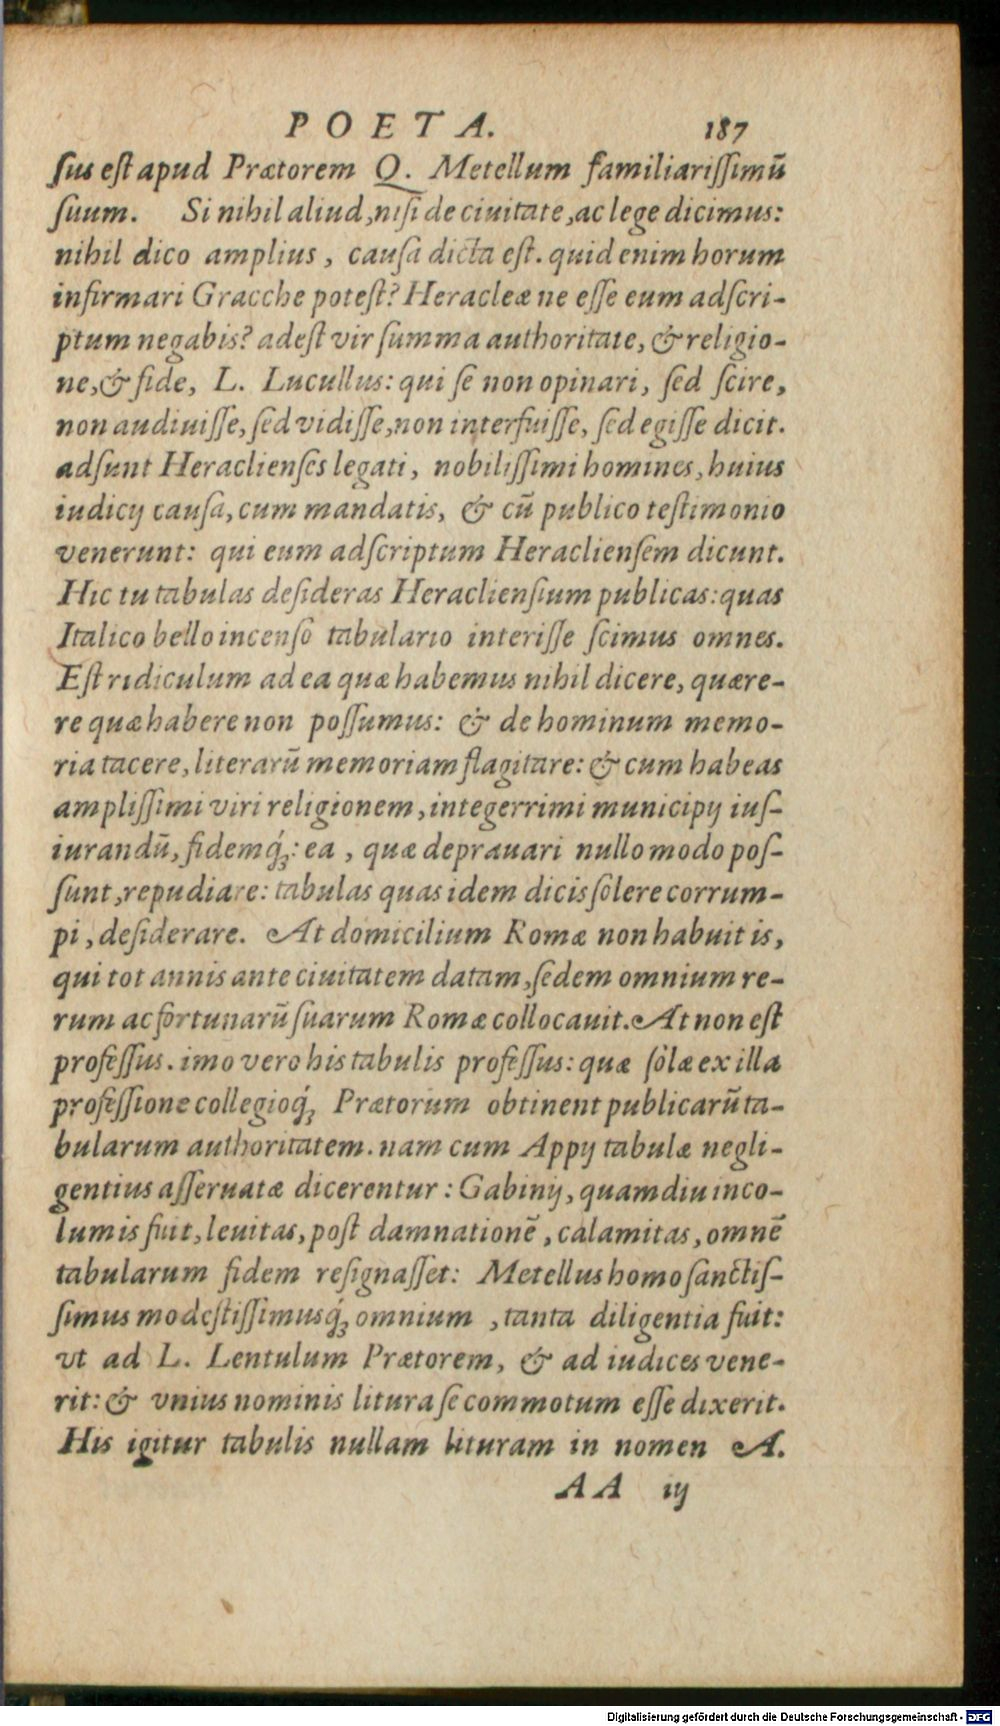 POETA. 187
ſius eſt apud Prætorem Q. Metellum familiariſſimũ
ſuum. Si nihil aliud, niſi de ciuitate, ac lege dicimus:
nihil dico amplius, cauſa dicta eſt. quid enim horum
infirmari Gracche poteſt? Heracleæ ne eſſe eum adſcri-
ptum negabis? adeſt vir ſumma authoritate, & religio-
ne, & fide, L. Lucullus: qui ſe non opinari, ſed ſcire,
non audiuiſſe, ſed vidiſſe, non interfuiſſe, ſed egiſſe dicit.
adſunt Heraclienſes legati, nobiliſſimi homines, huius
iudicij cauſa, cum mandatis, & cũ publico teſtimonio
venerunt: qui eum adſcriptum Heraclienſem dicunt.
Hic tu tabulas deſideras Heraclienſium publicas: quas
Italico bello incenſo tabulario interiſſe ſcimus omnes.
Eſt ridiculum ad ea quæ habemus nihil dicere, quære-
re quæ habere non poſſumus: & de hominum memo-
ria tacere, literarũ memoriam flagitare: & cum habeas
ampliſſimi viri religionem, integerrimi municipij iuſ-
iurandũ, fidemq́;: ea, quæ deprauari nullo modo poſ-
ſunt, repudiare: tabulas quas idem dicis ſolere corrum-
pi, deſiderare. At domicilium Romæ non habuit is,
qui tot annis ante ciuitatem datam, ſedem omnium re-
rum ac fortunarũ ſuarum Romæ collocauit. At non eſt
profeſſus. imo vero his tabulis profeſſus: quæ ſolæ ex illa
profeſſione collegioq́; Prætorum obtinent publicarũ ta-
bularum authoritatem. nam cum Appij tabulæ negli-
gentius aſſeruatæ dicerentur: Gabinij, quamdiu inco-
lumis fuit, leuitas, poſt damnationẽ, calamitas, omnẽ
tabularum fidem reſignaſſet: Metellus homo ſanctiſ-
ſimus modeſtiſſimusq́; omnium, tanta diligentia fuit:
vt ad L. Lentulum Prætorem, & ad iudices vene-
rit: & vnius nominis litura ſe commotum eſſe dixerit.
His igitur tabulis nullam lituram in nomen A.
AA iij
Digitalisierung gefördert durch die Deutsche Forschungsgemeinschaft - DFG